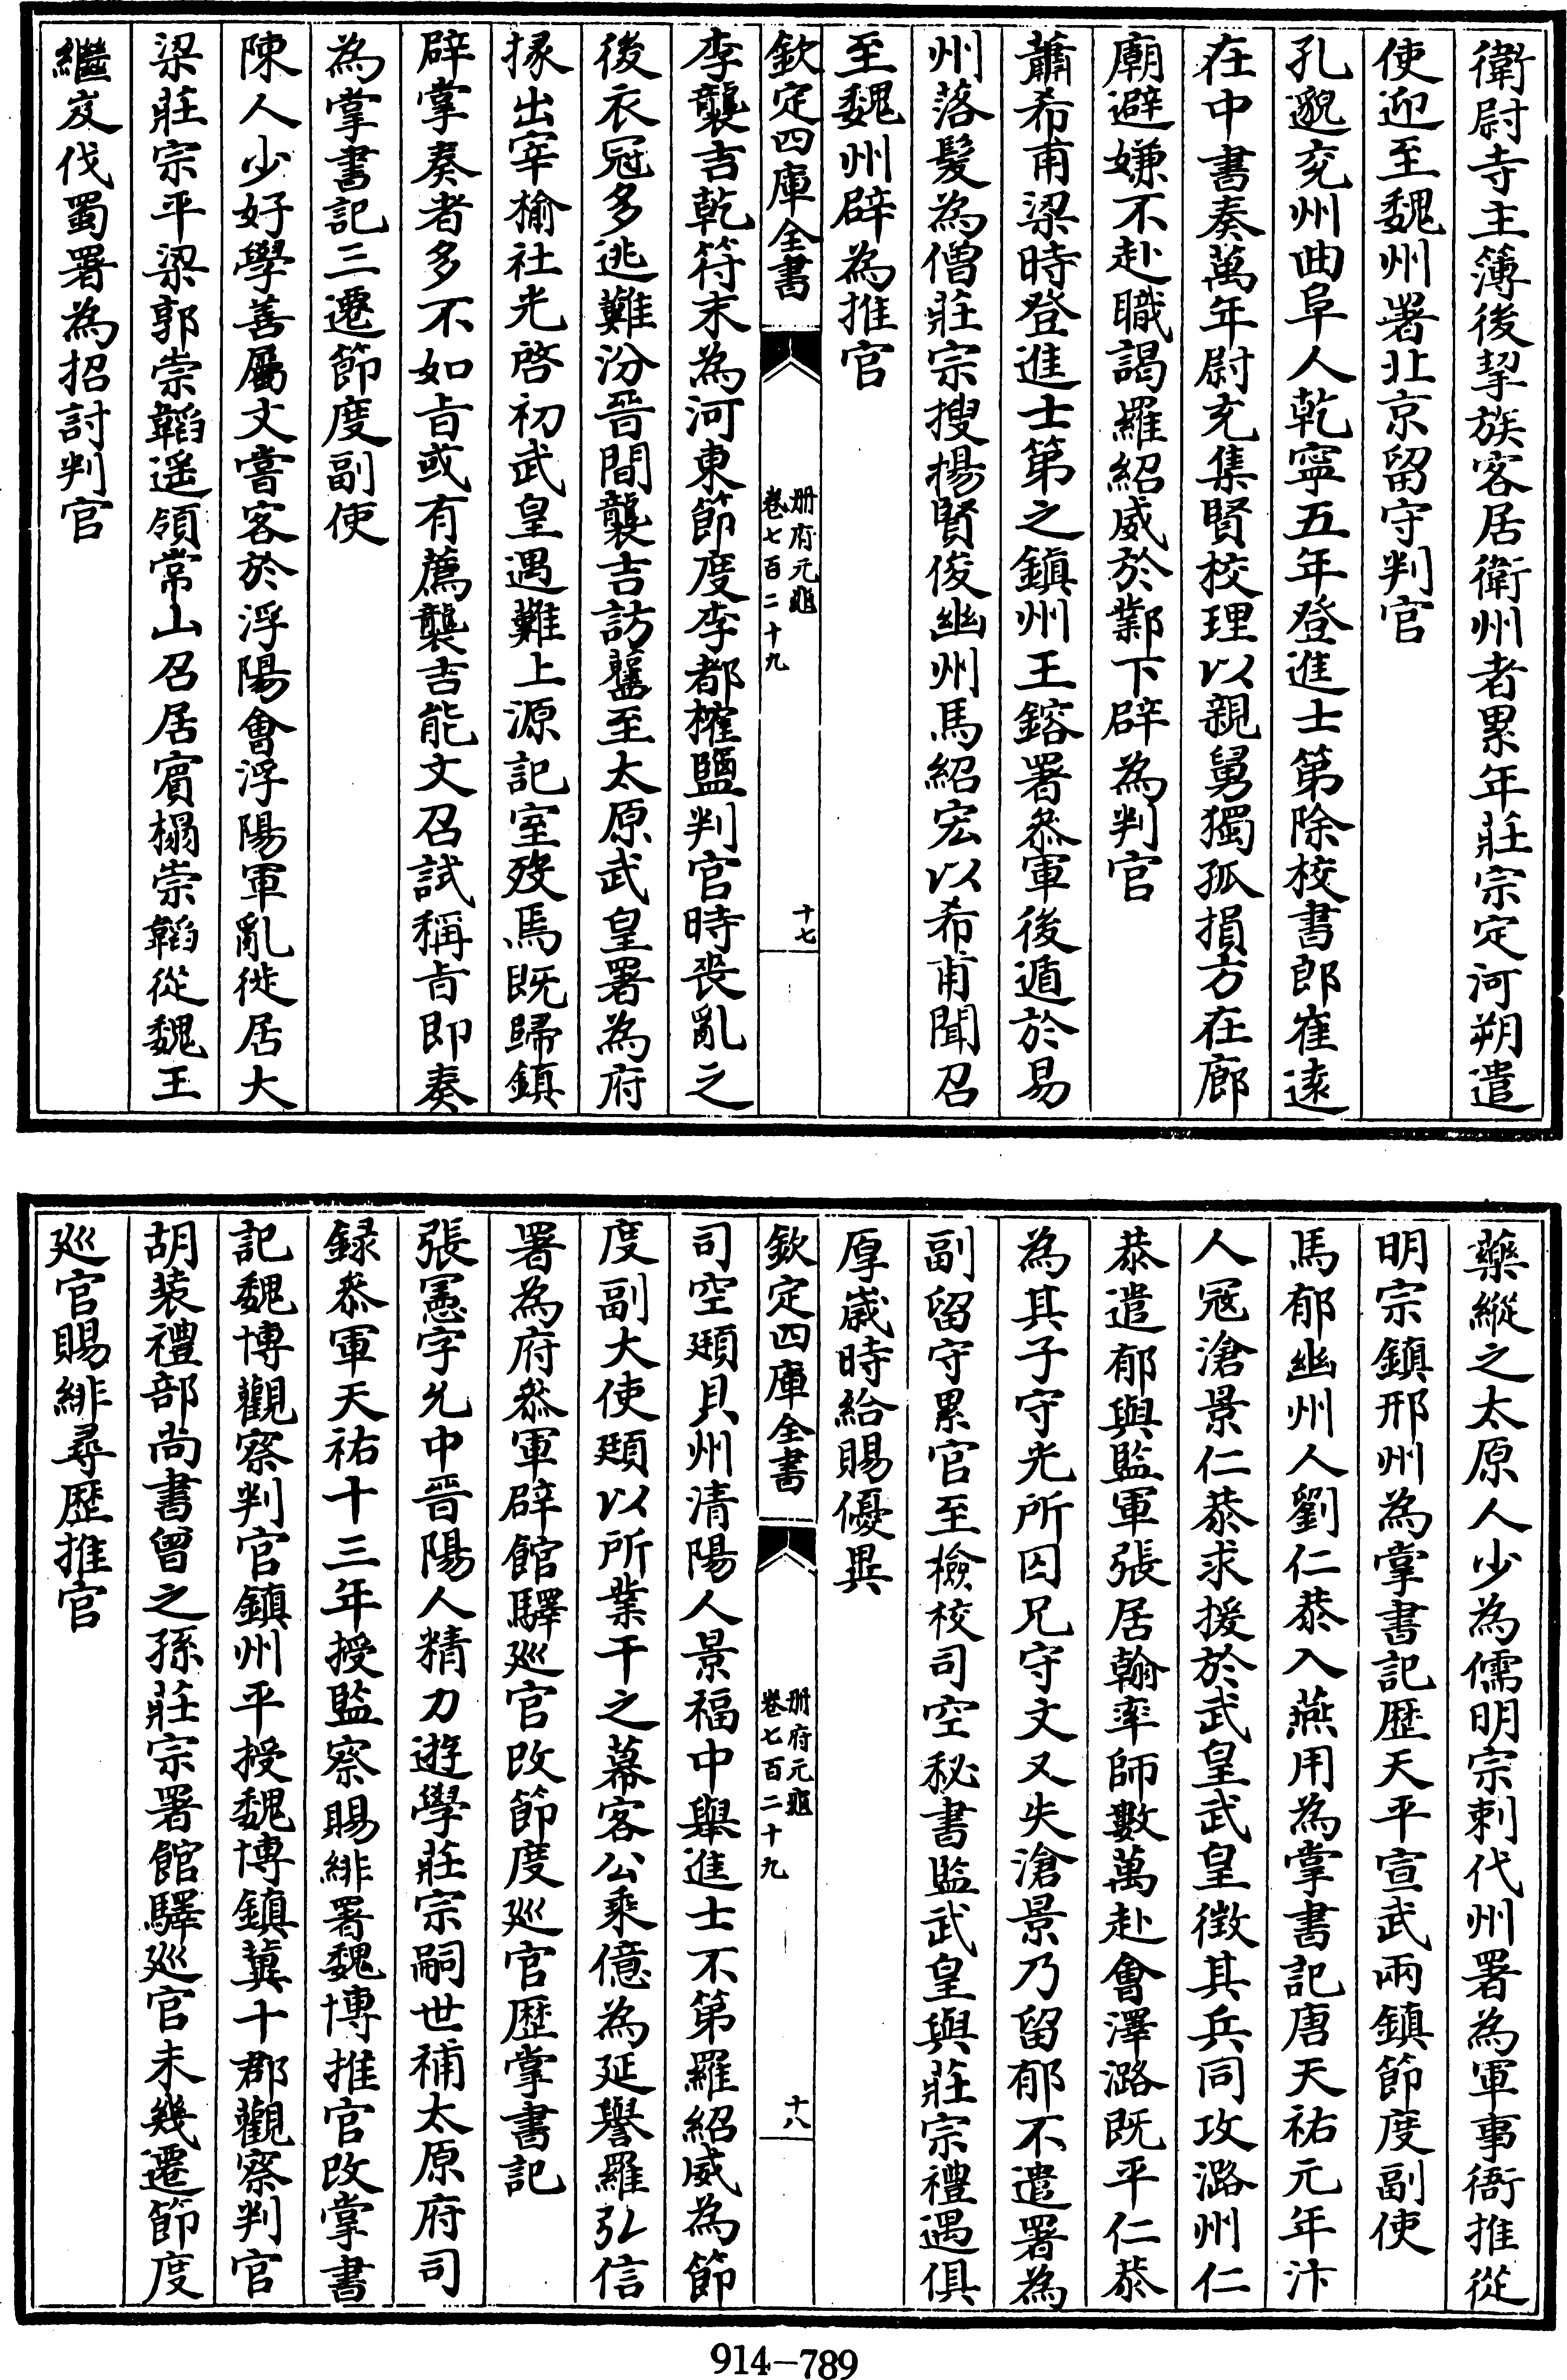 衛尉寺主簿後挈族客居衛州者累年莊宗定河朔遣
使迎至魏州署北京留守判官
孔邈兖州曲阜人乾寧五年登進士第除校書郎崔逺
在中書奏萬年尉充集賢校理以親舅獨孤損方在廊
廟避嫌不赴職謁羅紹威於鄴下辟為判官
蕭希甫梁時登進士第之鎮州王鎔署叅軍後遁於易
州落髮為僧莊宗搜揚賢俊幽州馬紹宏以希甫聞召
至魏州辟為推官
欽定四庫全書
册府元龜
卷七百二十九
十七
李襲吉乾符末為河東節度李都榷鹽判官時丧亂之
後衣冠多逃難汾晉間襲吉訪舊至太原武皇署為府
掾出宰榆社光啓初武皇遇難上源記室殁焉既歸鎮
辟掌奏者多不如㫖或有薦襲吉能文召試稱㫖即奏
為掌書記三遷節度副使
陳人少好學善屬文嘗客於浮陽會浮陽軍亂徙居大
梁莊宗平梁郭崇韜遥領常山召居賔榻崇韜從魏王
繼岌伐蜀署為招討判官
藥縱之太原人少為儒明宗刺代州署為軍事衙推從
明宗鎮邢州為掌書記歴天平宣武兩鎮節度副使
馬郁幽州人劉仁恭入燕用為掌書記唐天祐元年汴
人冦滄景仁恭求援於武皇武皇徴其兵同攻潞州仁
恭遣郁與監軍張居翰率師數萬赴會澤潞既平仁恭
為其子守光所囚兄守文又失滄景乃留郁不遣署為
副留守累官至檢校司空秘書監武皇與莊宗禮遇俱
厚嵗時給賜優異
欽定四庫全書
册府元龜
卷七百二十九
十八
司空頲貝州清陽人景福中舉進士不第羅紹威為節
度副大使頲以所業干之幕客公乘億為延譽羅弘信
署為府叅軍辟館驛廵官改節度廵官歴掌書記
張憲字允中晉陽人精力遊學莊宗嗣世補太原府司
録叅軍天祐十三年授監察賜緋署魏博推官改掌書
記魏博觀察判官鎮州平授魏博鎮冀十郡觀察判官
胡装禮部尚書曾之孫莊宗署館驛廵官未幾遷節度
廵官賜緋尋歴推官
914-789